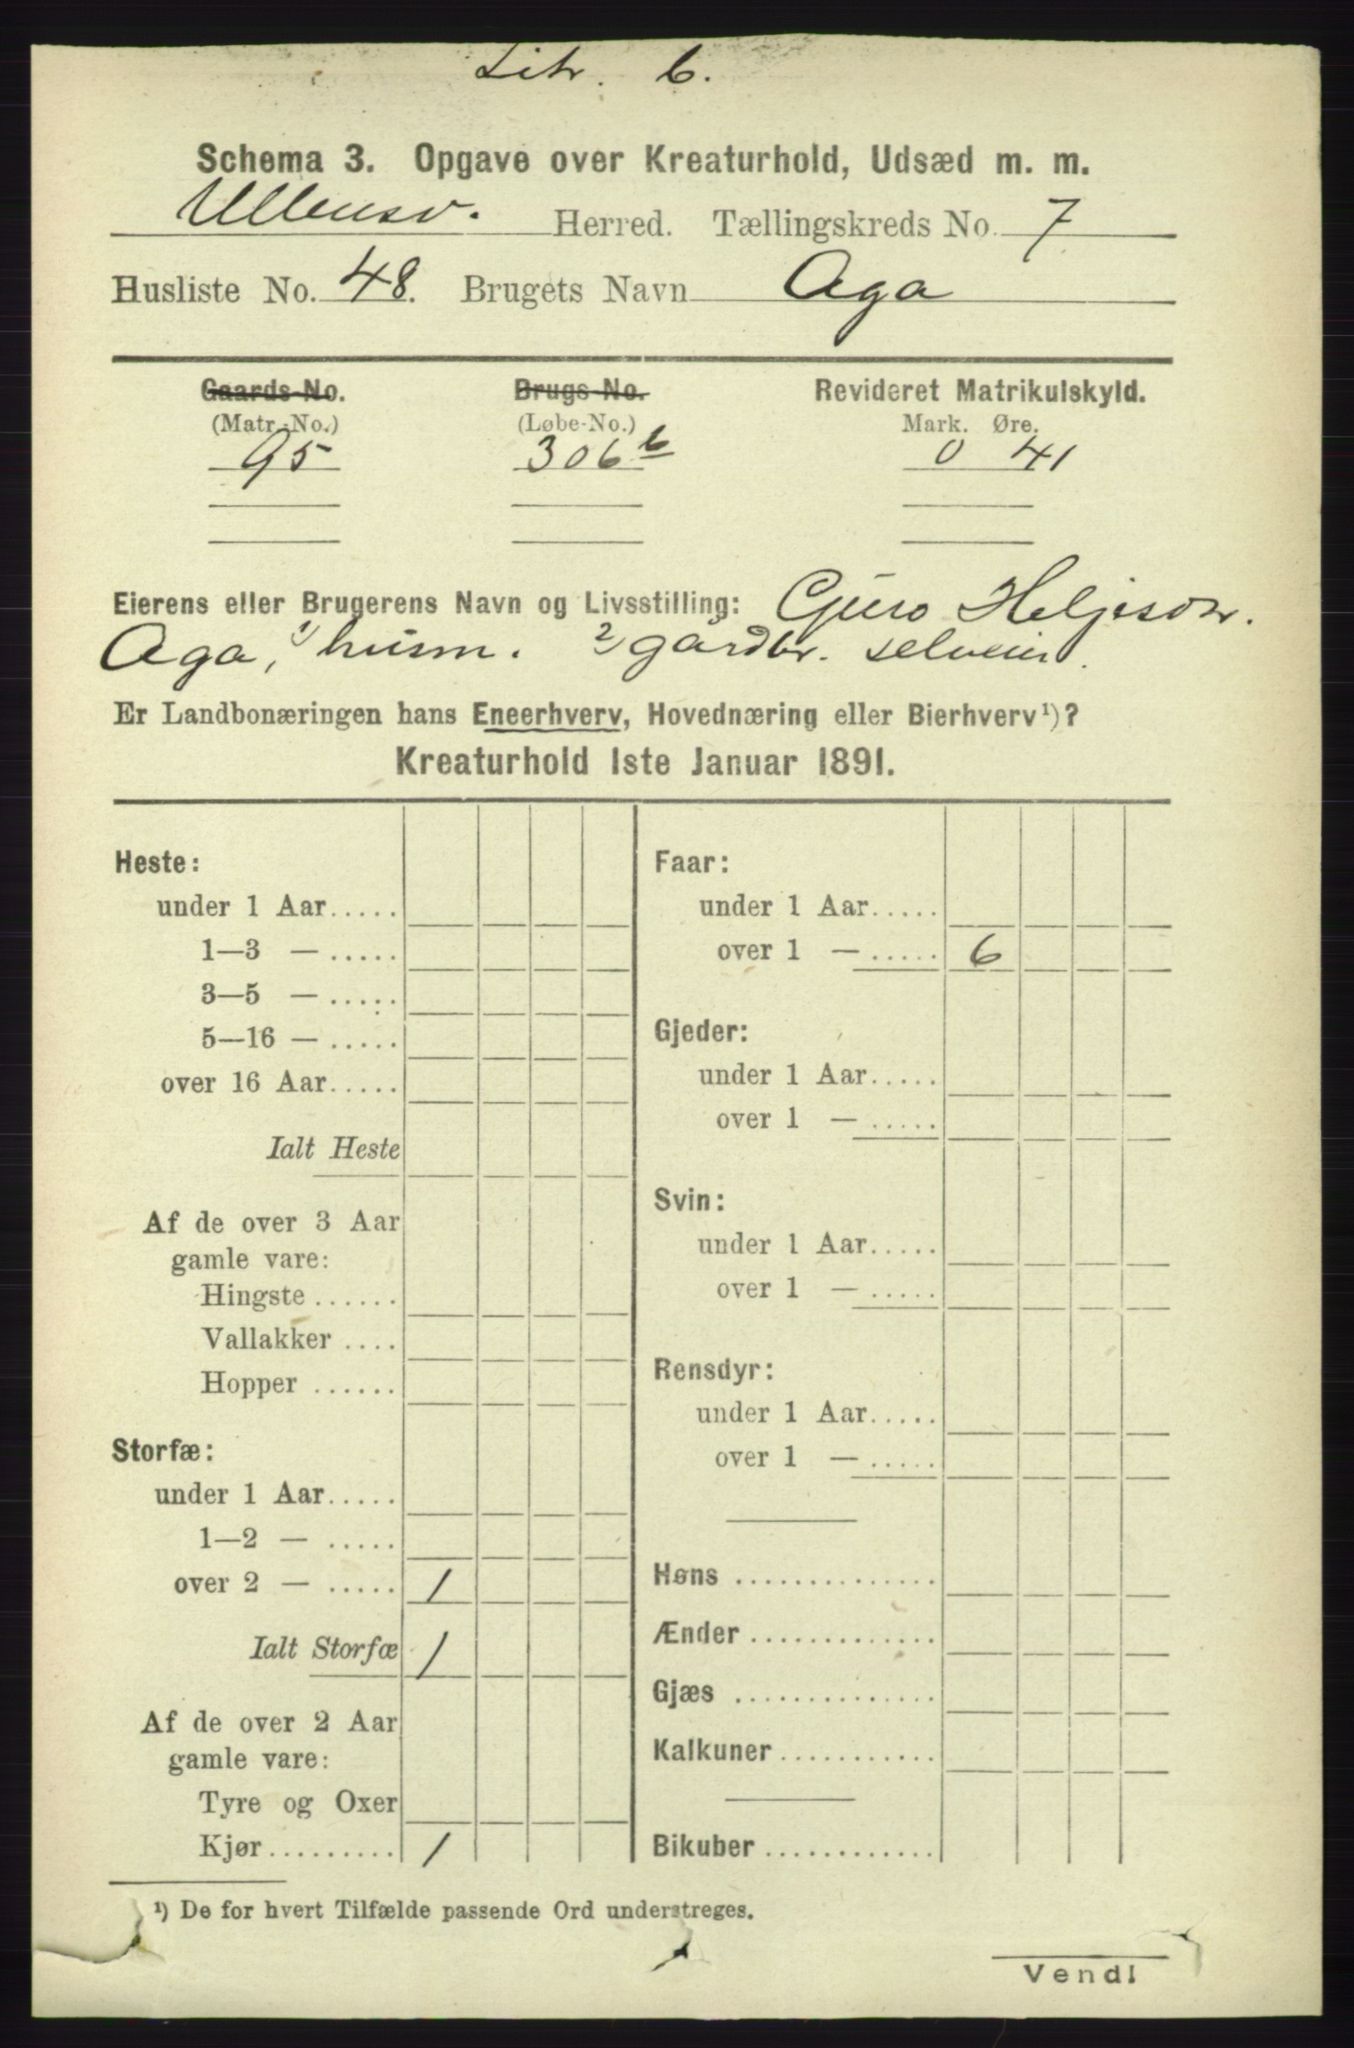 Litr. b.
Schema 3. Opgave over Kreaturhold, Udsæd m. m.
Ullensv. Herred. Tællingskreds No. 7
Husliste No. 48. Brugets Navn Aga
Gaards-No. Brugs-No. Revideret Matrikulskyld.
(Matr.-No.) (Løbe-No.) Mark. Øre.
95 306 b 0 41
Eierens eller Brugerens Navn og Livsstilling: Guro Heljesdtr.
Aga, 1) husm. 2) gårdbr. selveier.
Er Landbonæringen hans Eneerhverv, Hovednæring eller Bierhverv¹)?
Kreaturhold 1ste Januar 1891.
Heste:
under 1 Aar.....
1—3 — .....
3—5 — .....
5—16 — .....
over 16 Aar.....
Ialt Heste
Af de over 3 Aar
gamle vare:
Hingste ......
Vallakker ....
Hopper ......
Storfæ:
under 1 Aar.....
1—2 — .....
over 2 — ..... 1
Ialt Storfæ 1
Af de over 2 Aar
gamle vare:
Tyre og Oxer
Kjør......... 1
Faar:
under 1 Aar.....
over 1 — ..... 6
Gjeder:
under 1 Aar.....
over 1 — .....
Svin:
under 1 Aar.....
over 1 — .....
Rensdyr:
under 1 Aar.....
over 1 — .....
Høns ..............
Ænder .............
Gjæs ..............
Kalkuner...........
Bikuber ............
¹) De for hvert Tilfælde passende Ord understreges.
Vend!